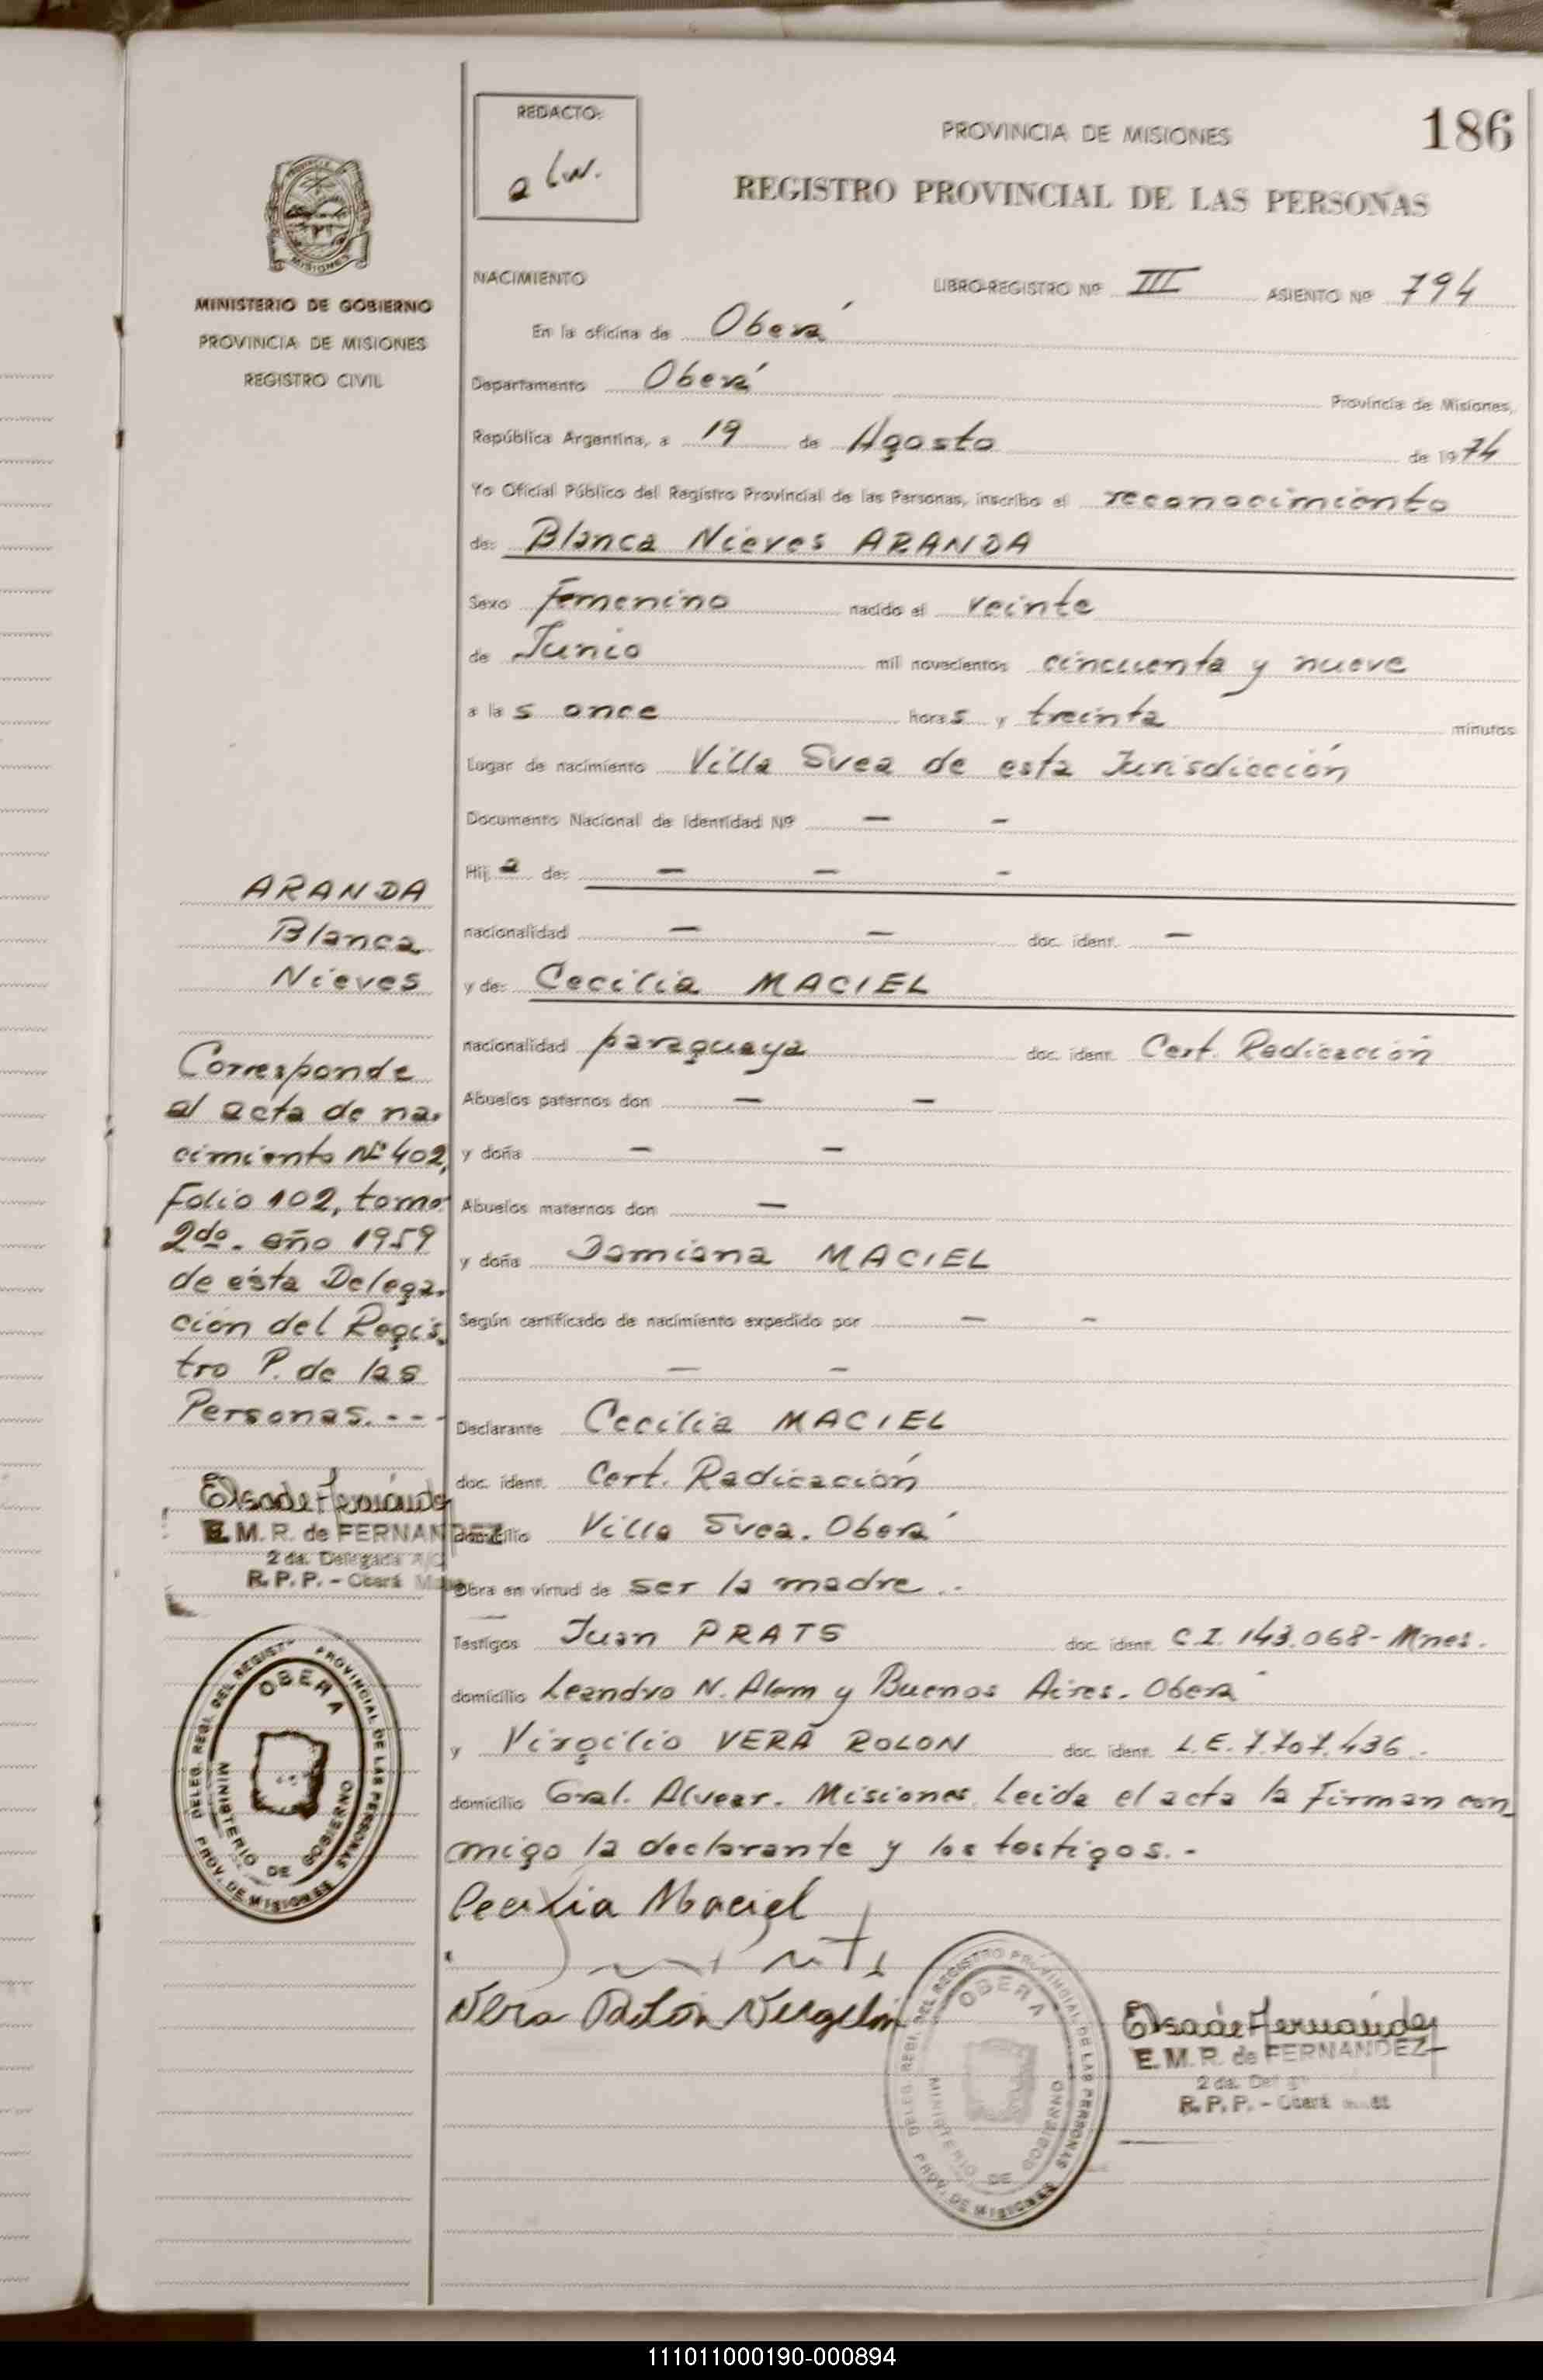 REDACTO:
PROVINCIA DE MISIONES
186
REGISTRO PROVINCIAL DE LAS PERSONAS
PROVINCIA DE
MISIONES
MINISTERIO DE GOBIERNO
PROVINCIA DE MISIONES
REGISTRO CIVIL
NACIMIENTO LIBRO-REGISTRO Nº III ASIENTO Nº 794
En la oficina de Oberá
Departamento Oberá Provincia de Misiones,
República Argentina, a 19 de Agosto de 1974
Yo Oficial Público del Registro Provincial de las Personas, inscribo el reconocimiento
de: Blanca Nieves ARANDA
Sexo femenino nacido el veinte
de Junio mil novecientos cincuenta y nueve
a las once horas y treinta minutos
Lugar de nacimiento Villa Svea de esta Jurisdicción
Documento Nacional de Identidad Nº — -
Hija de: — — -
nacionalidad — — doc. ident. —
y de: Cecilia MACIEL
nacionalidad paraguaya doc. ident. Cert. Radicación
Abuelos paternos don — —
y doña — —
Abuelos maternos don —
y doña Damiana MACIEL
Según certificado de nacimiento expedido por — -
— -
Declarante Cecilia MACIEL
doc. ident. Cert. Radicación
domicilio Villa Svea. Oberá
Obra en virtud de ser la madre..
Testigos Juan PRATS doc. ident. C.I. 143.068- Mnes.
domicilio Leandro N. Alem y Buenos Aires. Oberá
y Virgilio VERA ROLON doc. ident. L.E. 7.707.436.
domicilio Gral. Alvear. Misiones. Leida el acta la firman con
migo la declarante y los testigos.-
Cecilia Maciel
Vera Rolón Virgilio
ARANDA
Blanca
Nieves
Corresponde
al acta de na-
cimiento Nº 402,
Folio 102, tomo
2do. año 1959
de ésta Delega-
ción del Regis-
tro P. de las
Personas.---
Elsa de Fernández
E. M. R. de FERNANDEZ
2 da. Delegada A/C
R. P. P. - Oberá
DELEG. REGI. DEL REGISTRO PROVINCIAL DE LAS PERSONAS
OBERA
MINISTERIO DE GOBIERNO
PROV. DE MISIONES
DELEG. REGI. DEL REGISTRO PROVINCIAL DE LAS PERSONAS
OBERA
MINISTERIO DE GOBIERNO
PROV. DE MISIONES
Elsa de Fernández
E. M. R. de FERNANDEZ
2 da.
R. P. P. - Oberá
111011000190-000894